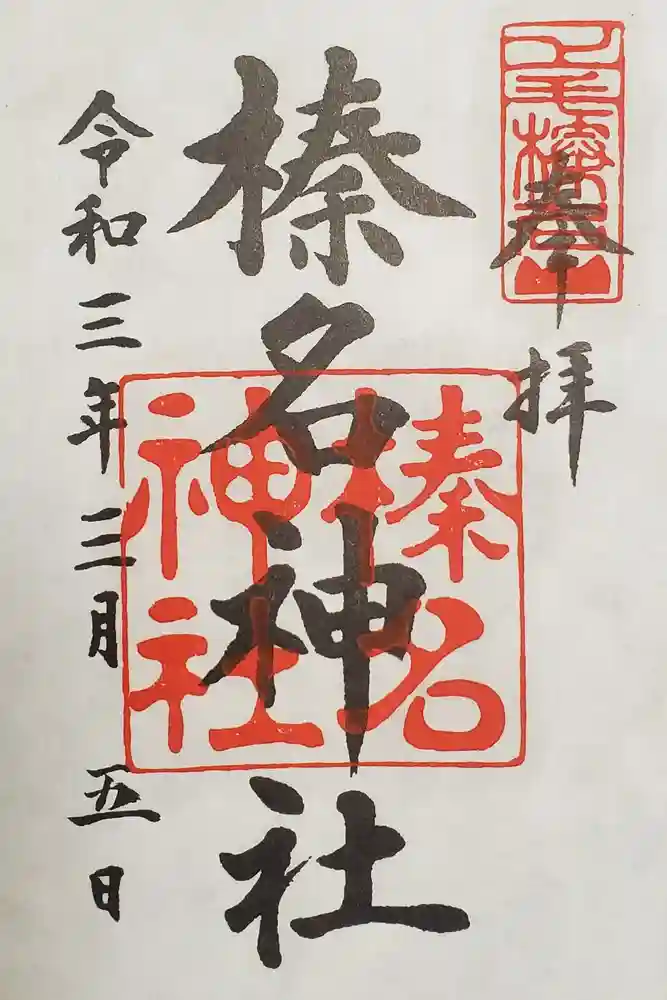 奉拝
榛名神社
令和三年三月五日
榛名
神社